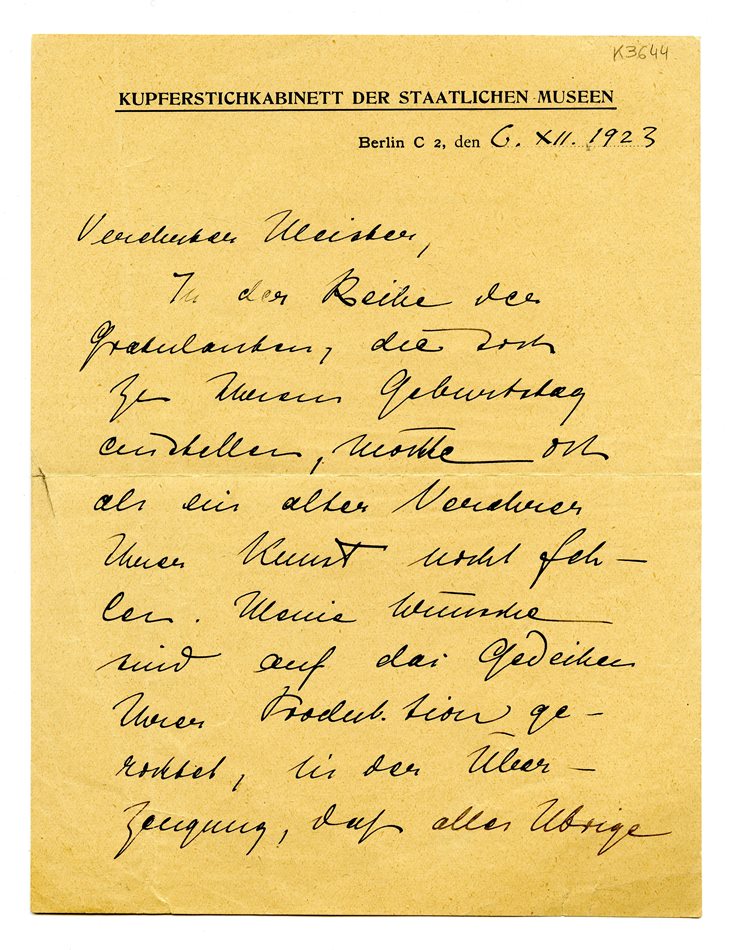 K3644
KUPFERSTICHKABINETT DER STAATLICHEN MUSEEN
Berlin C 2, den 6. XII. 1923
Verehrter Meister,
In der Reihe der
Gratulanten, die sich
zu Ihrem Geburtstag
einstellen, möchte ich
als ein alter Verehrer
Ihrer Kunst nicht feh-
len. Meine Wünsche
sind auf das Gedeihen
Ihrer Produktion ge-
richtet, in der Über-
zeugung, daß alles Übrige